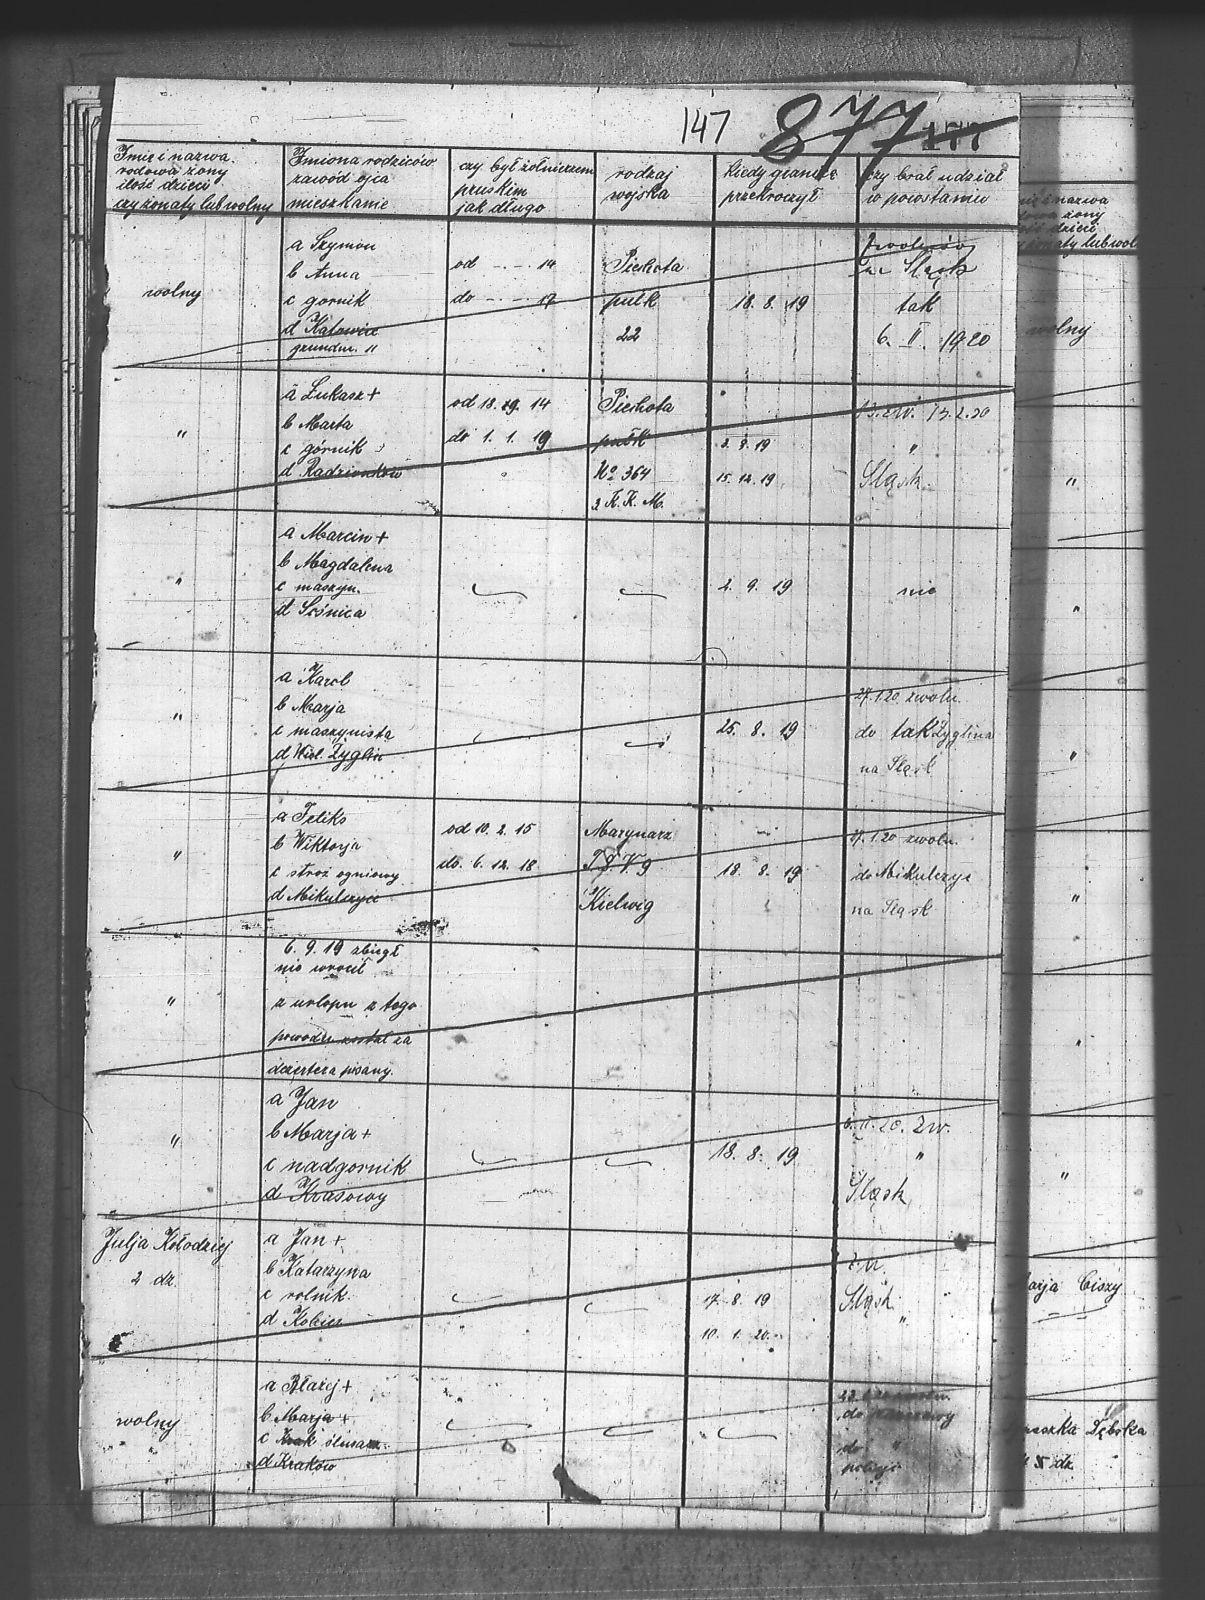 147 877
Imię i nazwa.
rodowa żony
ilość dzieci
czy żonaty lub wolny
Imiona rodziców
zawód ojca
mieszkanie
czy był żołnierzem
pruskim
jak długo
rodzaj
wojska
kiedy granicę
przekroczył
czy brał udział
w powstaniu
wolny
a Szymon
b Anna
c gornik
d Katowice
grundm. 11
od - - - 14
do - - - 17
Piechota
pułk
22
18. 8. 19
na Śląsk
tak
6. II. 1920
"
a Łukasz +
b Marta
c górnik
d Radzionków
od 18. 19. 14
do 1. 1. 19
Piechota
pułk
No 364
2 K. K. M.
2. 9. 19
15. 12. 19
13. zw. 13. 2. 20
"
Śląsk.
"
a Marcin +
b Magdalena
c maszyn.
d Sośnica
2. 9. 19
nie
"
a Karol
b Marja
c maszynista
d Wiel. Żyglin
25. 8. 19
27. 1. 20 zwoln.
do tak Żyglina
na Śląsk
"
a Feliks
b Wiktorja
c stroż ogniowy
d Mikulczyce
od 10. 2. 15
do. 6. 12. 18
Marynarz
Kielwig
18. 8. 19
27. 1. 20 zwoln.
do Mikulczyc
na Śląsk
"
6. 9. 19 zbiegł
nie wrocił
z urlopu z tego
powodu został za
dezertera pisany.
"
a Jan
b Marja +
c nadgornik
d Krasowy
18. 8. 19
6. II. 20. Zw.
"
Śląsk
Julja Kołodziej
2 dz.
a Jan +
b Katarzyna
c rolnik
d Kobier
17. 8. 19
10. 1. 20.
zw.
Śląsk
"
wolny
"
a Błażej +
b Marja +
c ślusarz
d Kraków
do
do "
policji
wolny
"
"
"
"
"
"
arja Ciszy
Dębska
dz.